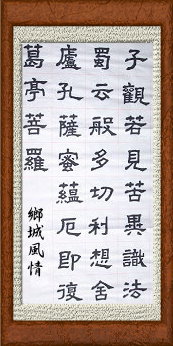 子觀若見苦異識法
蜀云般多切利想舍
盧孔薩蜜蘊厄即復
葛亭菩羅
鄉城風情